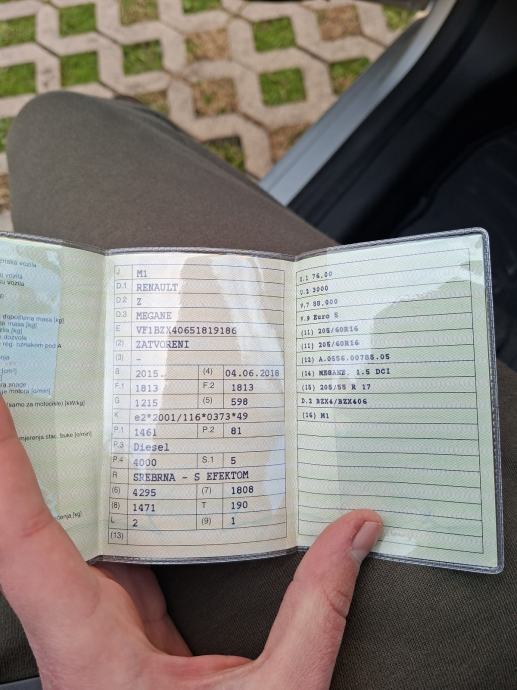 vozila
vozila
dopuštena masa [kg]
masa [kg]
[kg]
dozvole
reg. oznakom pod A
motora [o/min]
(samo za motocikle) [kW/kg]
mjerenja stac. buke [o/min]
J M1
D.1 RENAULT
D.2 Z
D.3 MEGANE
E VF1BZX40651819186
(2) ZATVORENI
(3) -
B 2015. (4) 04.06.2018
F.1 1813 F.2 1813
G 1215 (5) 598
K e2*2001/116*0373*49
P.1 1461 P.2 81
P.3 Diesel
P.4 4000 S.1 5
R SREBRNA - S EFEKTOM
(6) 4295 (7) 1808
(8) 1471 T 190
L 2 (9) 1
(13)
U.1 76,00
U.2 3000
V.7 88,000
V.9 Euro 5
(11) 205/60R16
(11) 205/60R16
(12) A.0556.00788.05
(14) MEGANE 1.5 DCI
(15) 205/55 R 17
D.2 BZX4/BZX406
(16) M1